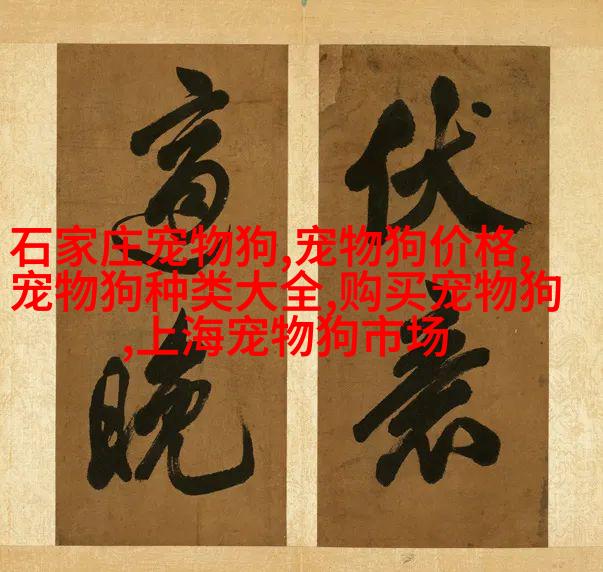 伏
晚
石家庄宠物狗,宠物狗价格,
宠物狗种类大全,购买宠物狗
,上海宠物狗市场